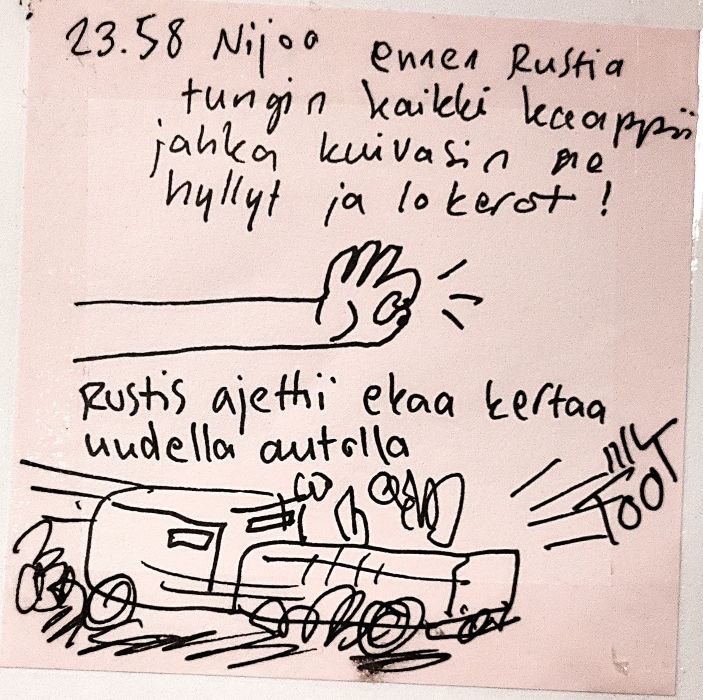 23.58 Nijoo ennen Rustia
tungin kaikki kaappii
jahka kuivasin ne
hyllyt ja lokerot!
Rustis ajettii ekaa kertaa
uudella autolla
TOOT